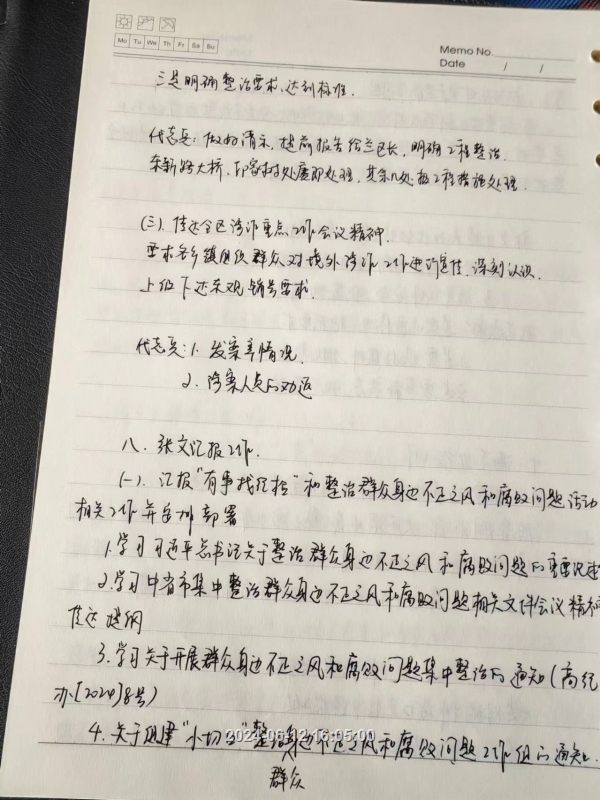 Mo Tu We Th Fr Sa Su
Memo No.
Date / /
三是明确整治要求、达到标准.
代志兵: 做好请示, 提前报告给兰区长, 明确工程整治.
东新跨大桥, 即客村处废即处理, 其余几处按工程措施处理.
(三). 传达全区涉诈重点工作会议精神.
要求各乡镇组织群众对境外涉诈工作进行宣传. 深刻认识
上级下达 销号要求.
代志兵: 1. 发案率情况.
2. 涉案人员的劝返
八. 张文汇报工作.
(一). 汇报"有事找纪检"和整治群众身边不正之风和腐败问题活动
相关工作并安排部署
1. 学习习近平总书记关于整治群众身边不正之风和腐败问题的重要论述
2. 学习中省市集中整治群众身边不正之风和腐败问题相关文件会议精神
传达提纲
3. 学习关于开展群众身边不正之风和腐败问题集中整治的通知(高纪
办[2024]8号)
4. 关于组建"小切口"整治身边不正之风和腐败问题工作组的通知.
群众
2024-06-12 16:05:00